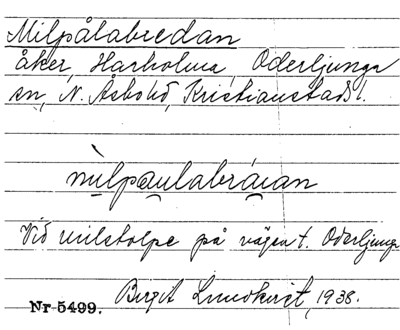 Milpålabredan
åker, Harholma, Oderljunga
sn, N. Åsbo hd, Kristianstads l.
mìlpau̯labrái̯an
Vid milstolpe på vägen t. Oderljunga
Birgit Lundkvist, 1938.
Nr 5499.